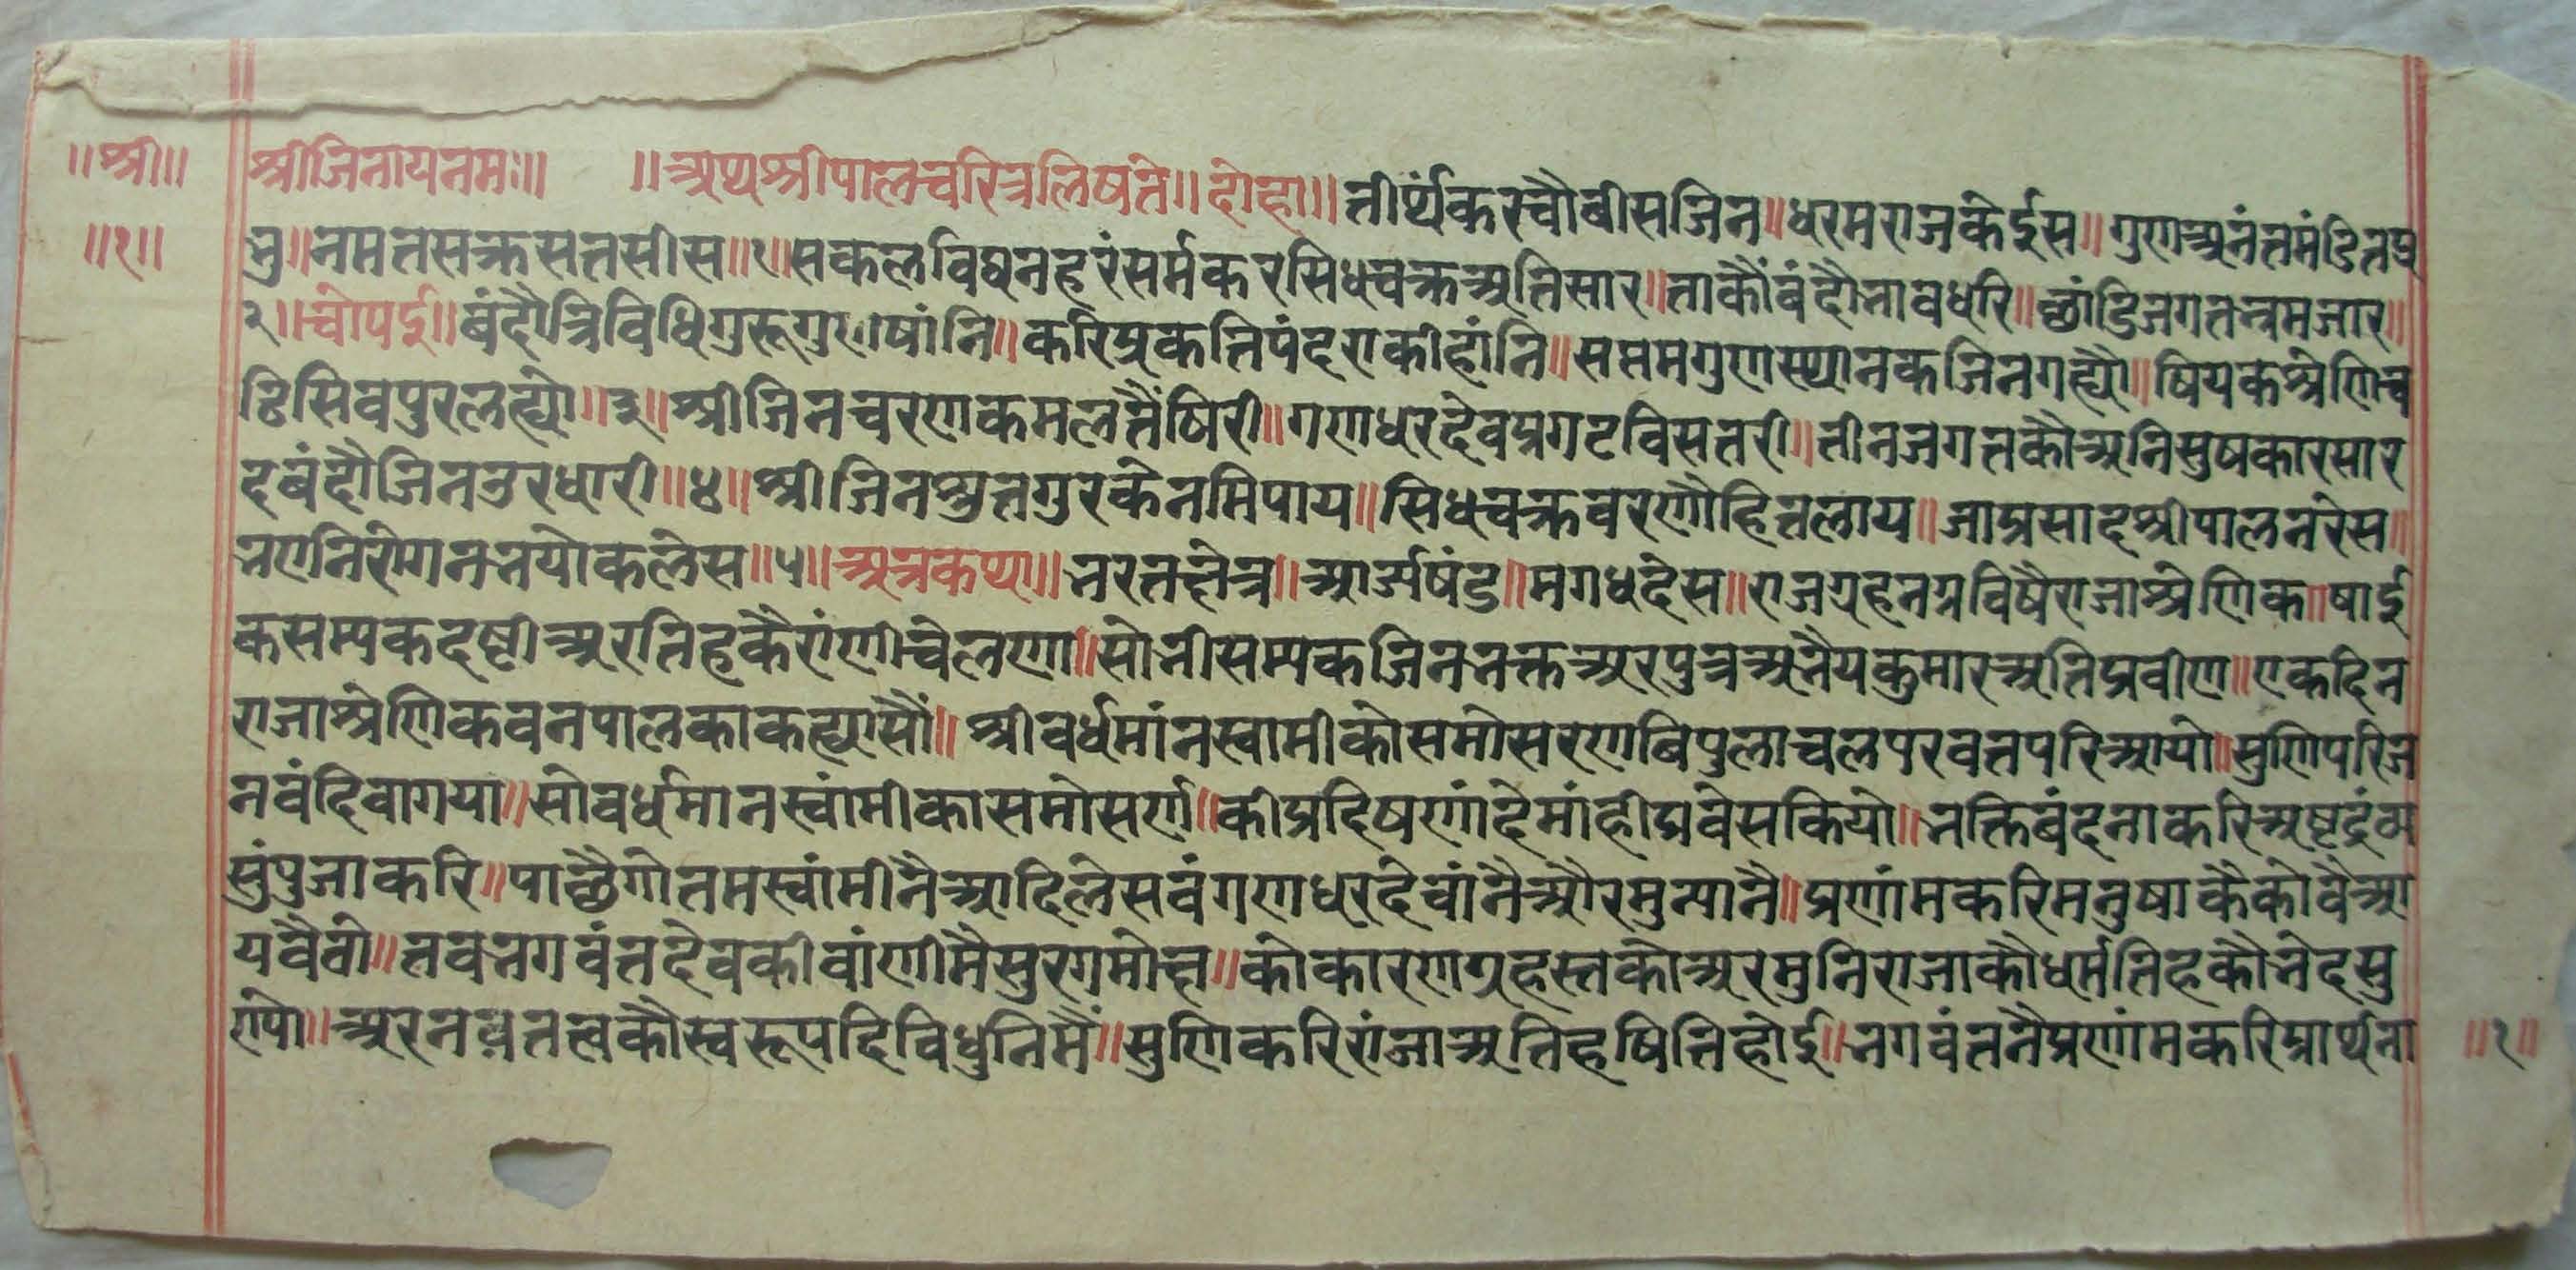 ॥श्री॥ श्रीजिनायनमः॥ ॥अथश्रीपालचरित्रलिषते॥ दोहा॥ तीर्थंकरचौबीसजिन॥धरमराजकेईस॥ गुणअनंतमंडितप्र
॥१॥ भु॥नमतसक्रसतसीस॥१॥सकलविघनहरंसर्मकरसिधचक्रअतिसार॥ताकौंबंदौभावधरि॥छांडिजगतभ्रमजार॥
२॥चोपई॥बंदौत्रिविधिगुरूगुणषांनि॥करिप्रकतिपंदराकीहांनि॥सप्तमगुणस्थानकजिनगह्यौ॥षियकश्रेणिच
ढिसिवपुरलह्यो॥३॥श्रीजिनचरणकमलतैंषिरी॥गणधरदेवप्रगटविसतरी॥तीनजगतकौअतिसुषकारसार
दबंदौजिनउरधारी॥४॥श्रीजिनश्रुतगुरकेनमिपाय॥सिधचक्रवरणौहितलाय॥जाप्रसादश्रीपालनरेस॥
भएनिरोगनभयोकलेस॥५॥अत्रकथा॥भरतक्षेत्र॥आर्जषंड॥मगधदेस॥राजग्रहनग्रविषैराजाश्रेणिक॥षाई
कसम्यकदष्टीअरतिहकैरांणीचेलणा॥सोभीसम्यकजिनभक्तअरपुत्रअभैयकुमारअतिप्रवीण॥एकदिन
राजाश्रेणिकवनपालकाकह्यासौं॥श्रीवर्धमांनस्वामीकोसमोसरणबिपुलाचलपरवतपरिआयो॥सुणिपरिज
नवंदिवागया॥सोवर्धमानस्वांमीकासमोसर्ण॥कीप्रदिषणांदेमांहीप्रवेसकियो॥भक्तिबंदनाकरिअष्टद्रंव्य
सुंपुजाकरि॥पाछैगोतमस्वांमीनैआदिलेसवंगणधरदेवांनैऔरमुन्यानै॥प्रणांमकरिमनुषाकैकोवैआ
यवैवो॥तवभगवंतदेवकीवांणीमैसुरगमोक्ष॥कोकारणग्रहस्तकोअरमुनिराजाकौधर्मतिहकौभेदसु
ण्यो॥अरनवतत्वकौस्वरूपदिविधुनिमैं॥सुणिकरिरांजाअतिहर्षितिहोई॥भगवंतनैप्रणांमकरिप्रार्थना ॥१॥